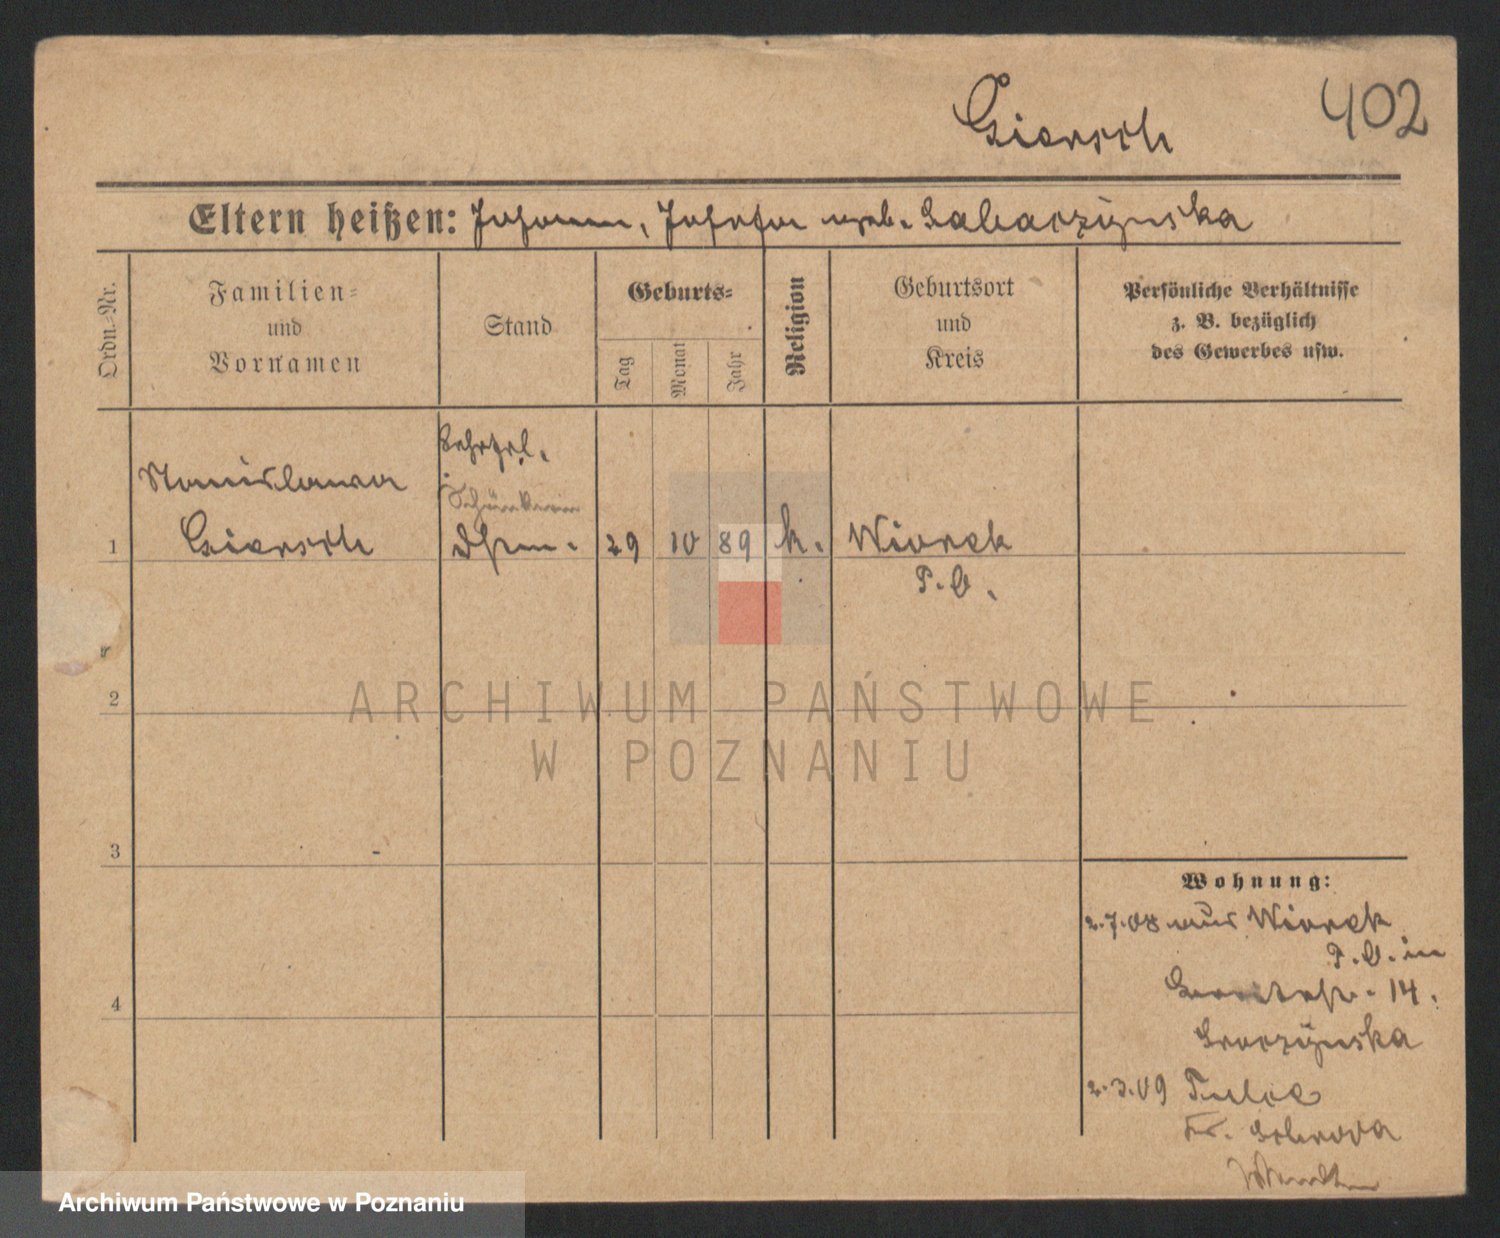 Giersch 402
Eltern heißen: Johann, Josefa geb. Labarzynska
Ordn.-Nr.
Familien-
und
Vornamen
Stand
Geburts-
Tag
Monat
Jahr
Religion
Geburtsort
und
Kreis
Persönliche Verhältnisse
z. B. bezüglich
des Gewerbes usw.
Stanislawa
Giersch
1
29 10 89 k. Wiorek
P. O.
2
3
4
ARCHIWUM PAŃSTWOWE
W POZNANIU
Wohnung:
2.7.08 aus Wiorek
P. O. in
14.
2.3.09
Kr. Schroda
Archiwum Państwowe w Poznaniu